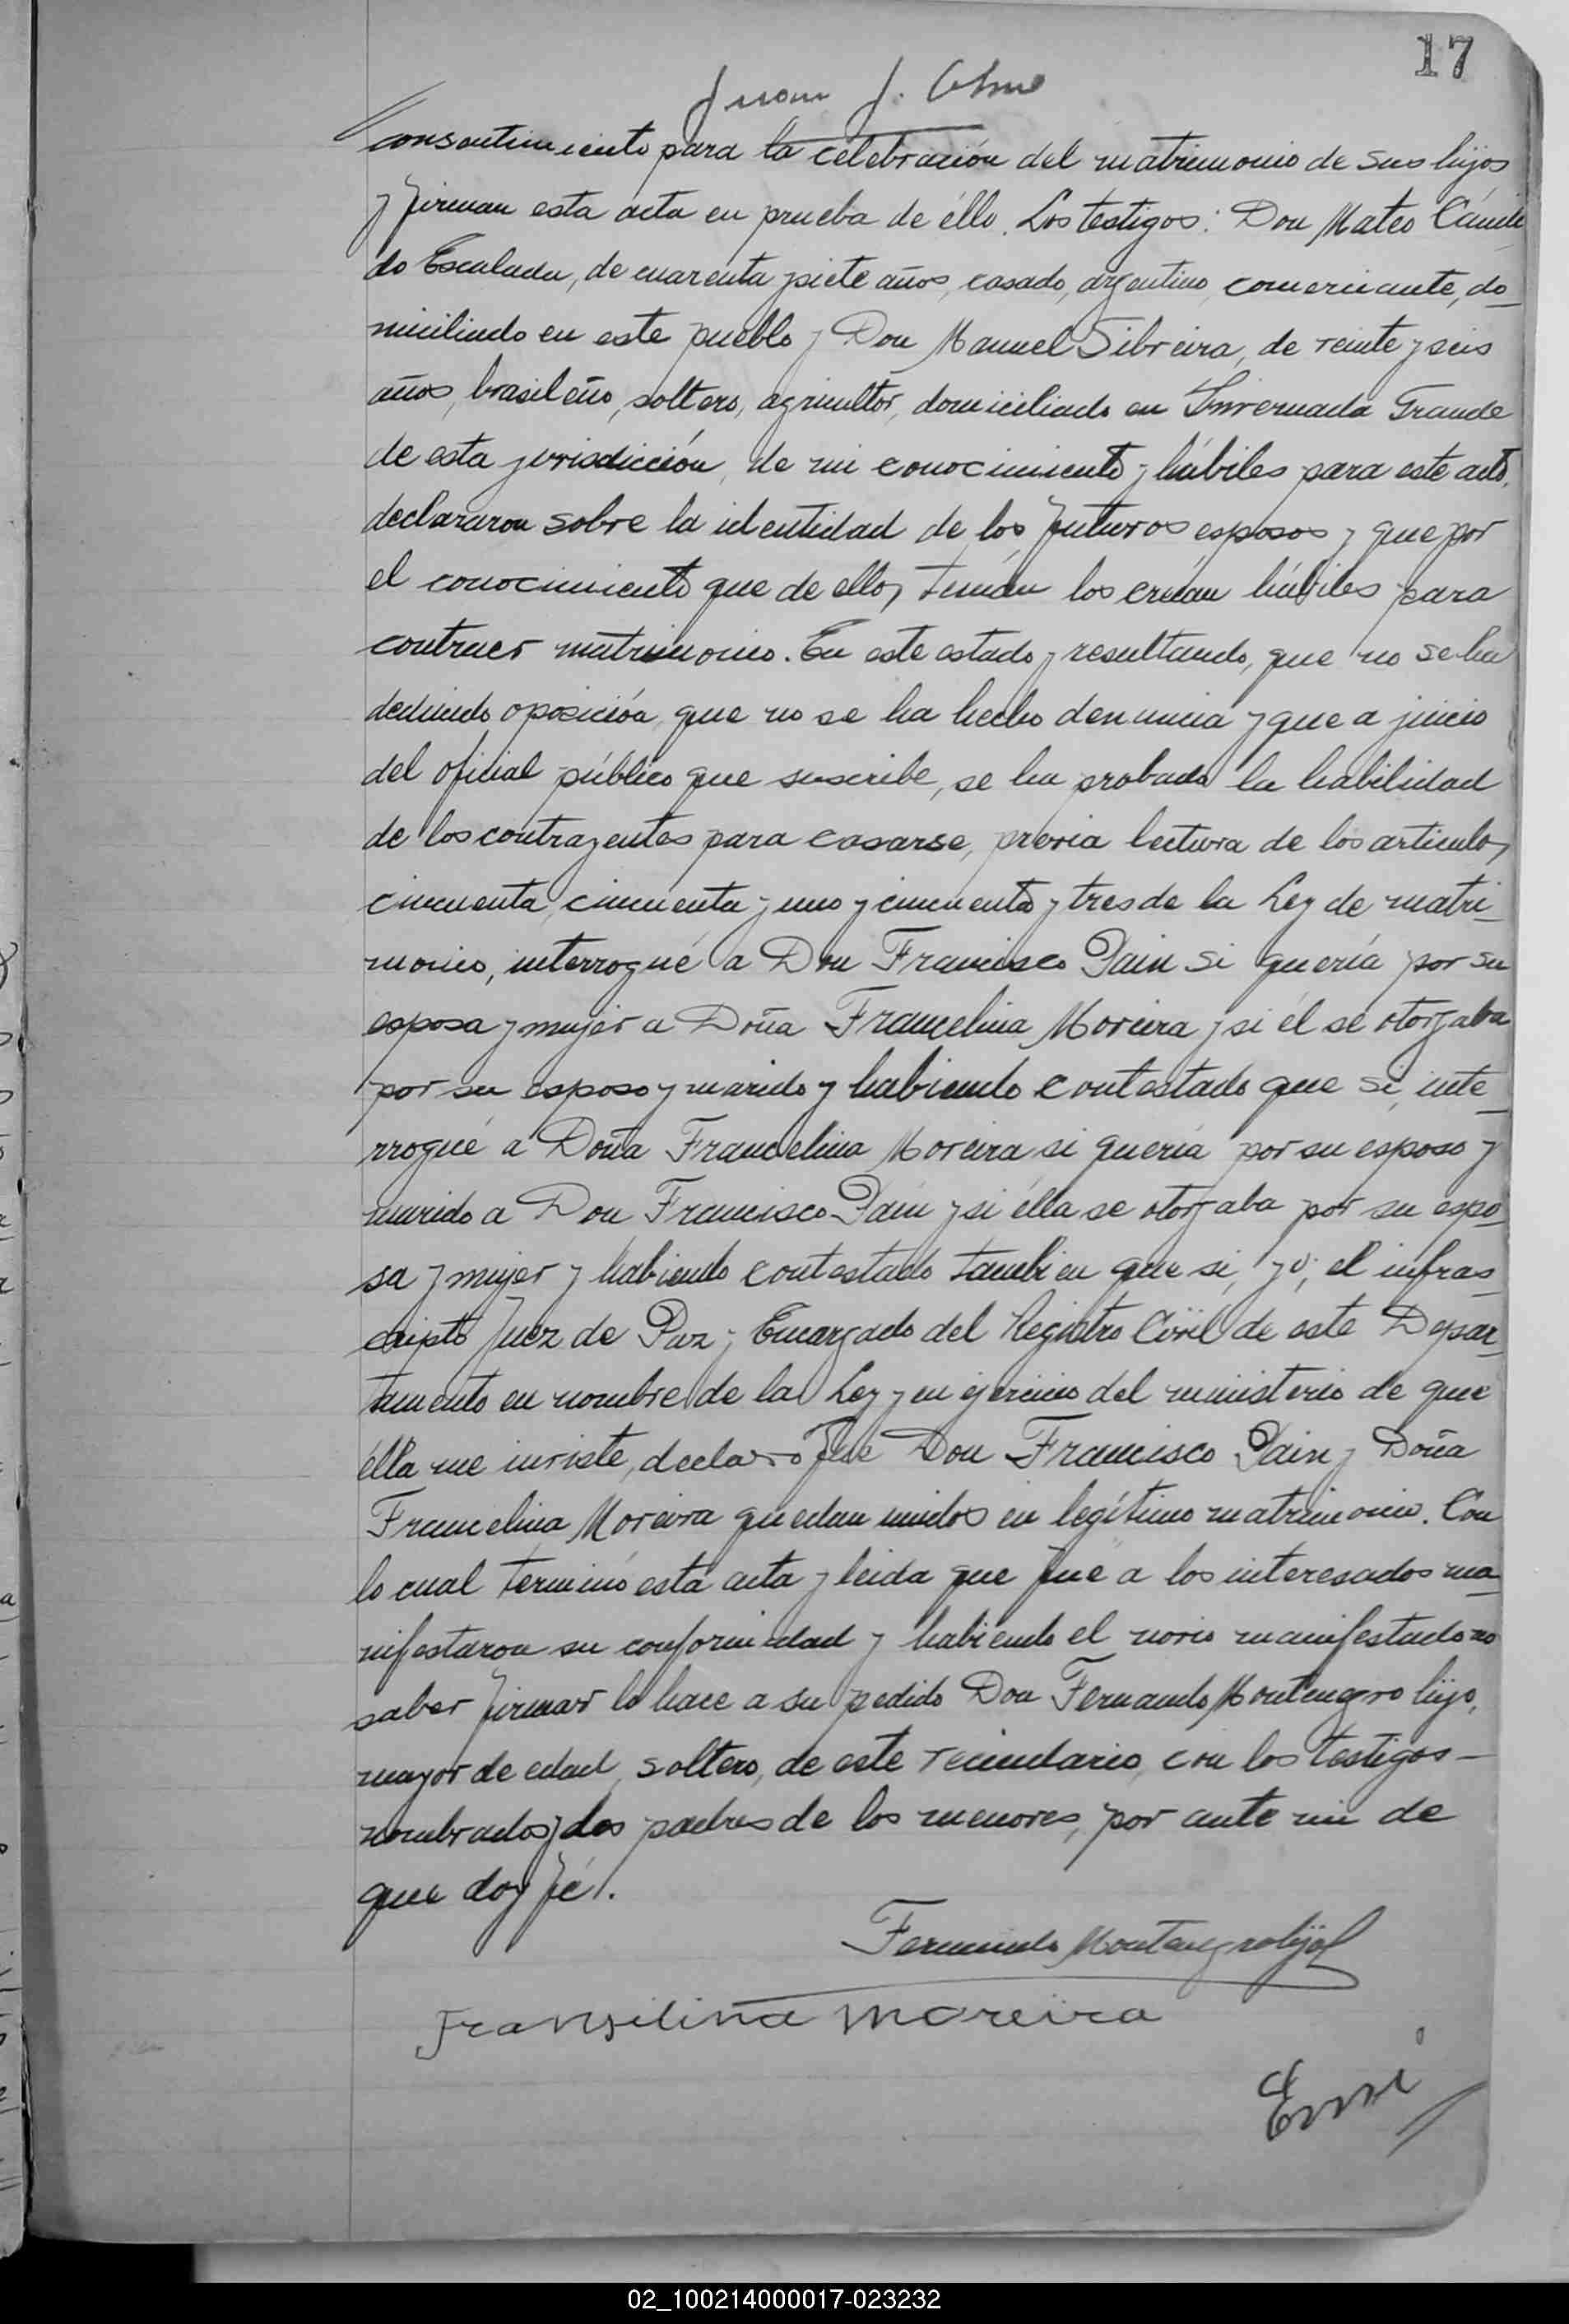 17
Juan J.
consentimiento para la celebración del matrimonio de sus hijos
y firman esta acta en prueba de éllo. Los testigos: Don Mateo Cándi
do Escalada, de cuarenta y siete años, casado, argentino, comerciante, do_
miciliado en este pueblo y Don Manuel Sibreira, de veinte y seis
años, brasileño, soltero, agricultor, domiciliado en Invernada Grande
de esta jurisdicción, de mi conocimiento y hábiles para este acto,
declararon sobre la identidad de los futuros esposos y que por
el conocimiento que de ellos tenían los creían hábiles para
contraer matrimonio. En este estado y resultando, que no se ha
deducido oposición, que no se ha hecho denuncia y que a juicio
del oficial público que suscribe, se ha probado la habilidad
de los contrayentes para casarse, previa lectura de los articulos
cincuenta, cincuenta y uno y cincuenta y tres de la Ley de matri_
monio, interrogué a Don Francisco Pain si quería por su
esposa y mujer a Doña Francelina Moreira y si él se otorgaba
por su esposo y marido y habiendo contestado que si, inte_
rrogué a Doña Francelina Moreira si quería por su esposo y
marido a Don Francisco Pain y si élla se otorgaba por su espo_
sa y mujer y habiendo contestado tambien que si, yo, el infras_
cripto Juez de Paz y Encargado del Registro Civil de este Depar_
tamento en nombre de la Ley y en ejercicio del ministerio de que
élla me inviste, declaro que Don Francisco Pain y Doña
Francelina Moreira quedan unidos en legítimo matrimonio. Con
lo cual terminó esta acta y leida que fué a los interesados ma_
nifestaron su conformidad y habiendo el novio manifestado no
saber firmar lo hace a su pedido Don Fernando Montenegro hijo,
mayor de edad, soltero, de este vecindario, con los testigos_
nombrados y los padres de los menores, por ante mi de
que doy fé.
Fernando Montenegro hijo
Fransilina Moreira
02_100214000017-023232